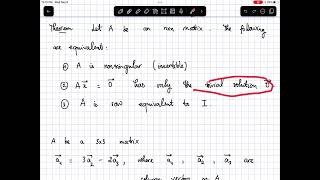 Theorem Let A be an nxn matrix. The following
are equivalent:
① A is nonsingular (invertible)
② A x⃗ = 0⃗ has only the trivial solution 0⃗
③ A is row equivalent to I.
A be a 3x3 matrix
a⃗₁ = 3a⃗₂ - 2a⃗₃, where a⃗₁, a⃗₂, a⃗₃ are
column vectors on A